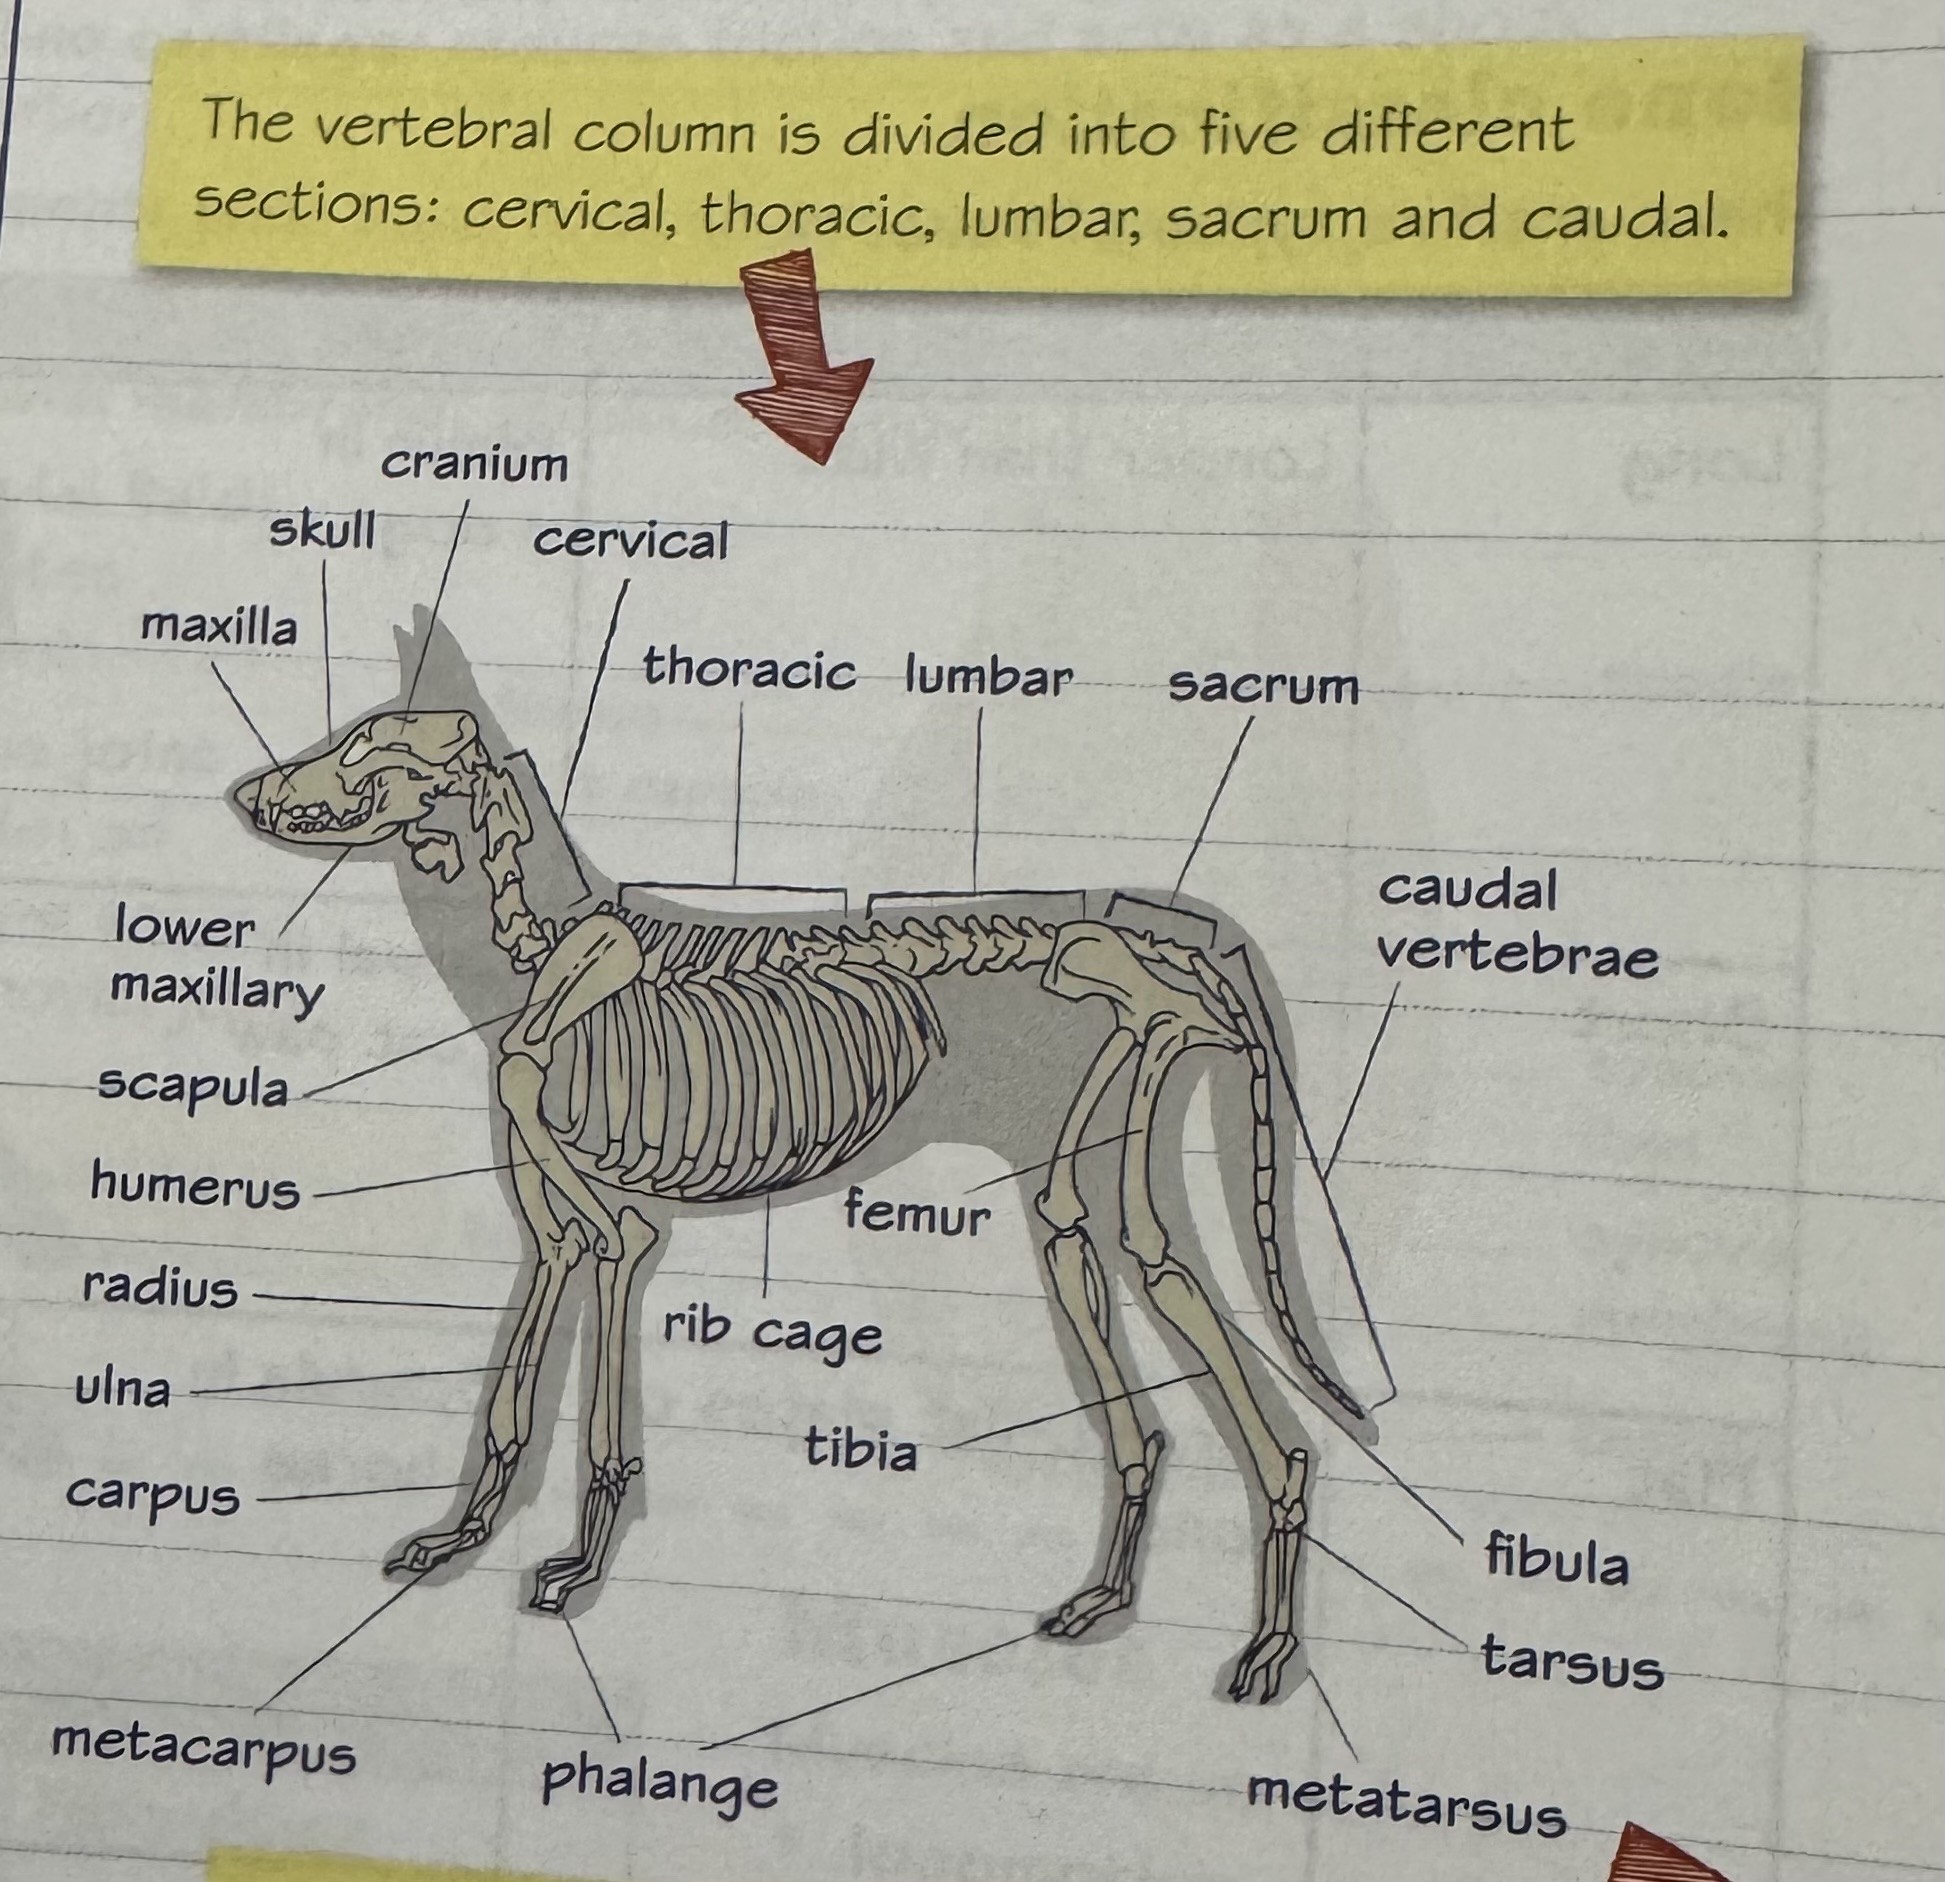 The vertebral column is divided into five different
sections: cervical, thoracic, lumbar, sacrum and caudal.
cranium
skull
cervical
maxilla
thoracic
lumbar
sacrum
caudal
vertebrae
lower
maxillary
scapula
humerus
femur
radius
rib cage
ulna
tibia
carpus
fibula
tarsus
metacarpus
phalange
metatarsus